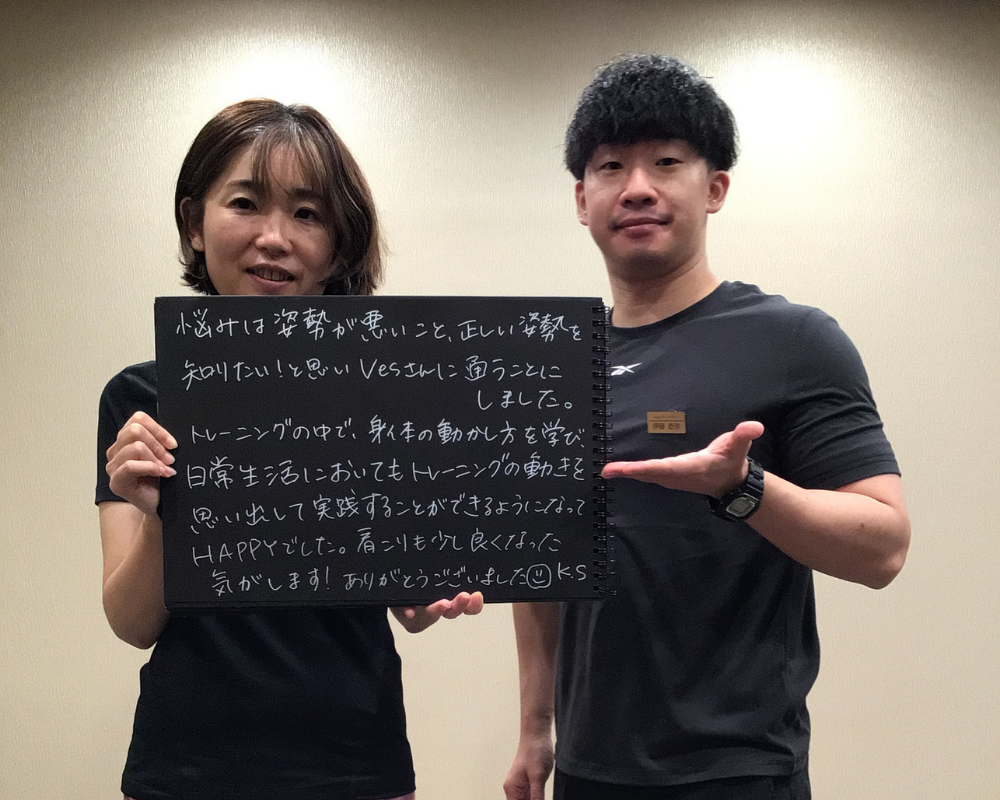 悩みは姿勢が悪いこと、正しい姿勢を
知りたい!と思いVesさんに通うことに
しました。
トレーニングの中で、身体の動かし方を学び、
日常生活においてもトレーニングの動きを
思い出して実践することができるようになって
HAPPYでした。肩こりも少し良くなった
気がします!ありがとうございました☺ K.S